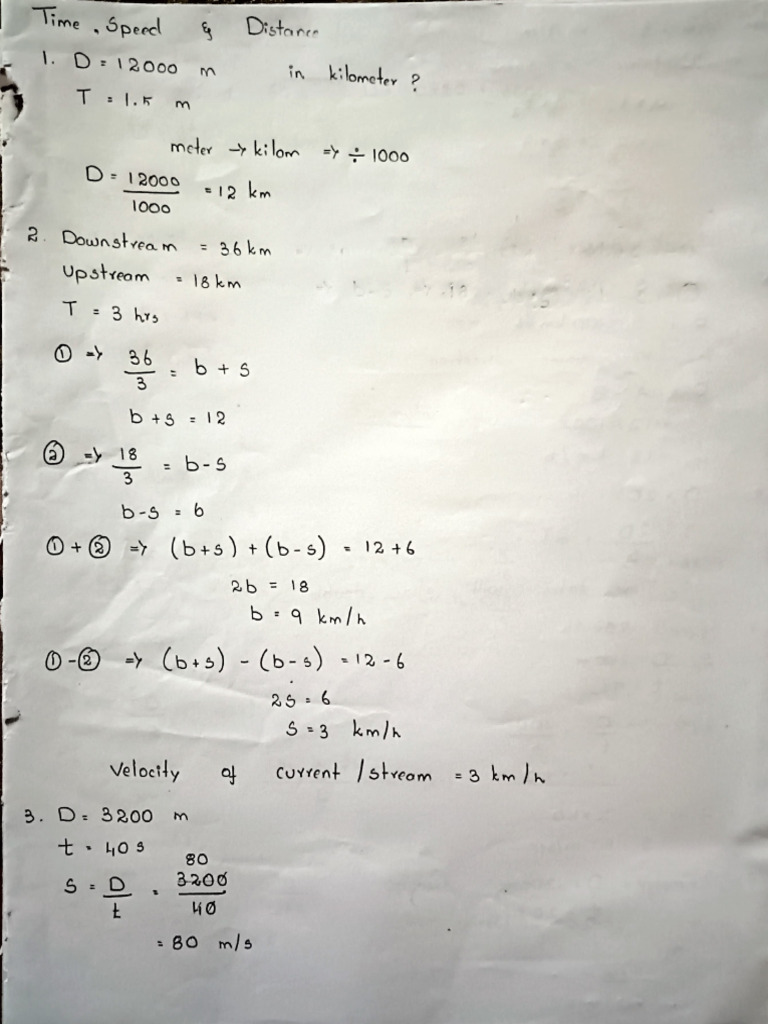 Time, Speed & Distance
1. D = 12000 m in kilometer ?
T = 1.5 m
meter → kilom => ÷ 1000
D = 12000/1000 = 12 km
2. Downstream = 36 km
Upstream = 18 km
T = 3 hrs
① => 36/3 = b + s
b + s = 12
② => 18/3 = b - s
b - s = 6
① + ② => (b + s) + (b - s) = 12 + 6
2b = 18
b = 9 km/h
① - ② => (b + s) - (b - s) = 12 - 6
2s = 6
s = 3 km/h
Velocity of current / stream = 3 km/h
3. D = 3200 m
t = 40 s
80
s = D/t = 3200/40
= 80 m/s